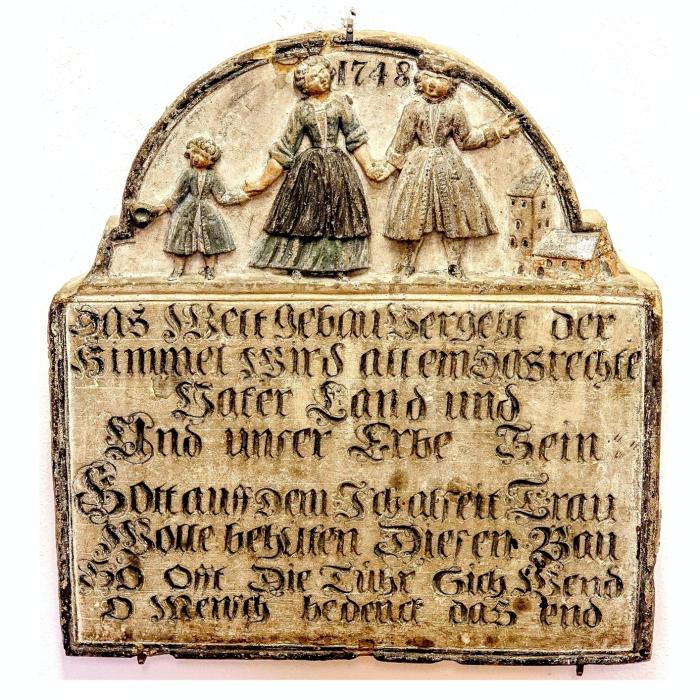 1748
Das Welt Gebau Vergeht der
Himmel Wird allein Das rechte
Vater Land und
Und unser Erbe Sein
Gott auff Dem Ich alzeit Trau
Wolle behuten Diesen Bau
SO Offt Die Tühr Sich Wend
O Mensch bedenck das end